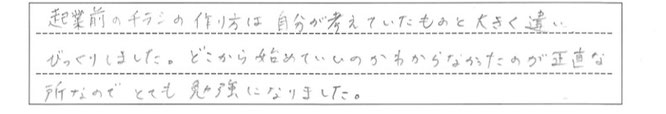 起業前のチラシの作り方は自分が考えていたものと大きく違い
びっくりしました。どこから始めていいのかわからなかったのが正直な
所なのでとても勉強になりました。